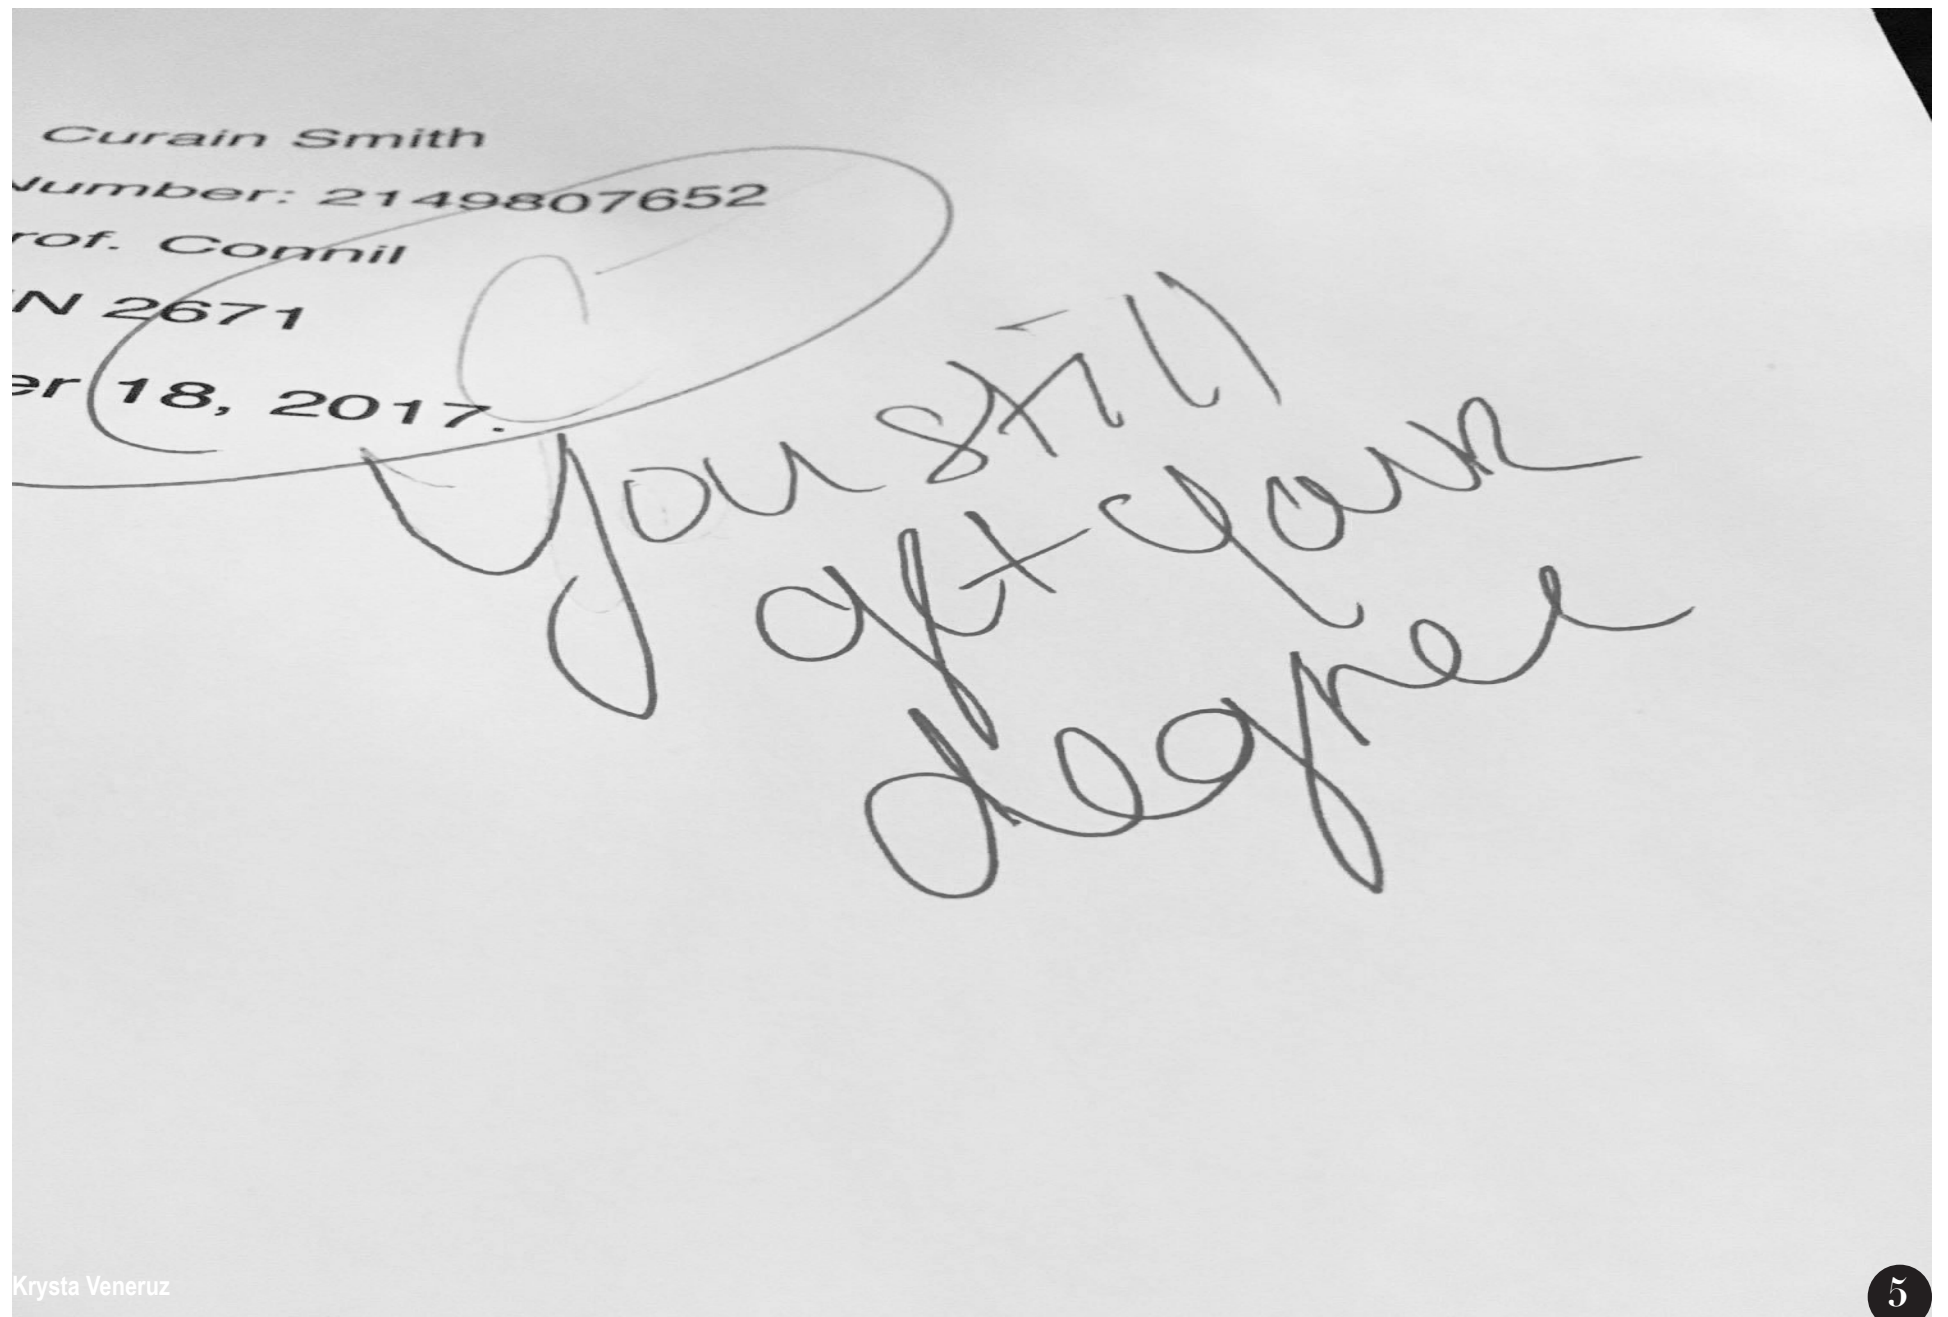 Curain Smith
Number: 2149807652
rof. Connil
N 2671
er 18, 2017.
C-
You still
get your
degree
Krysta Veneruz
5